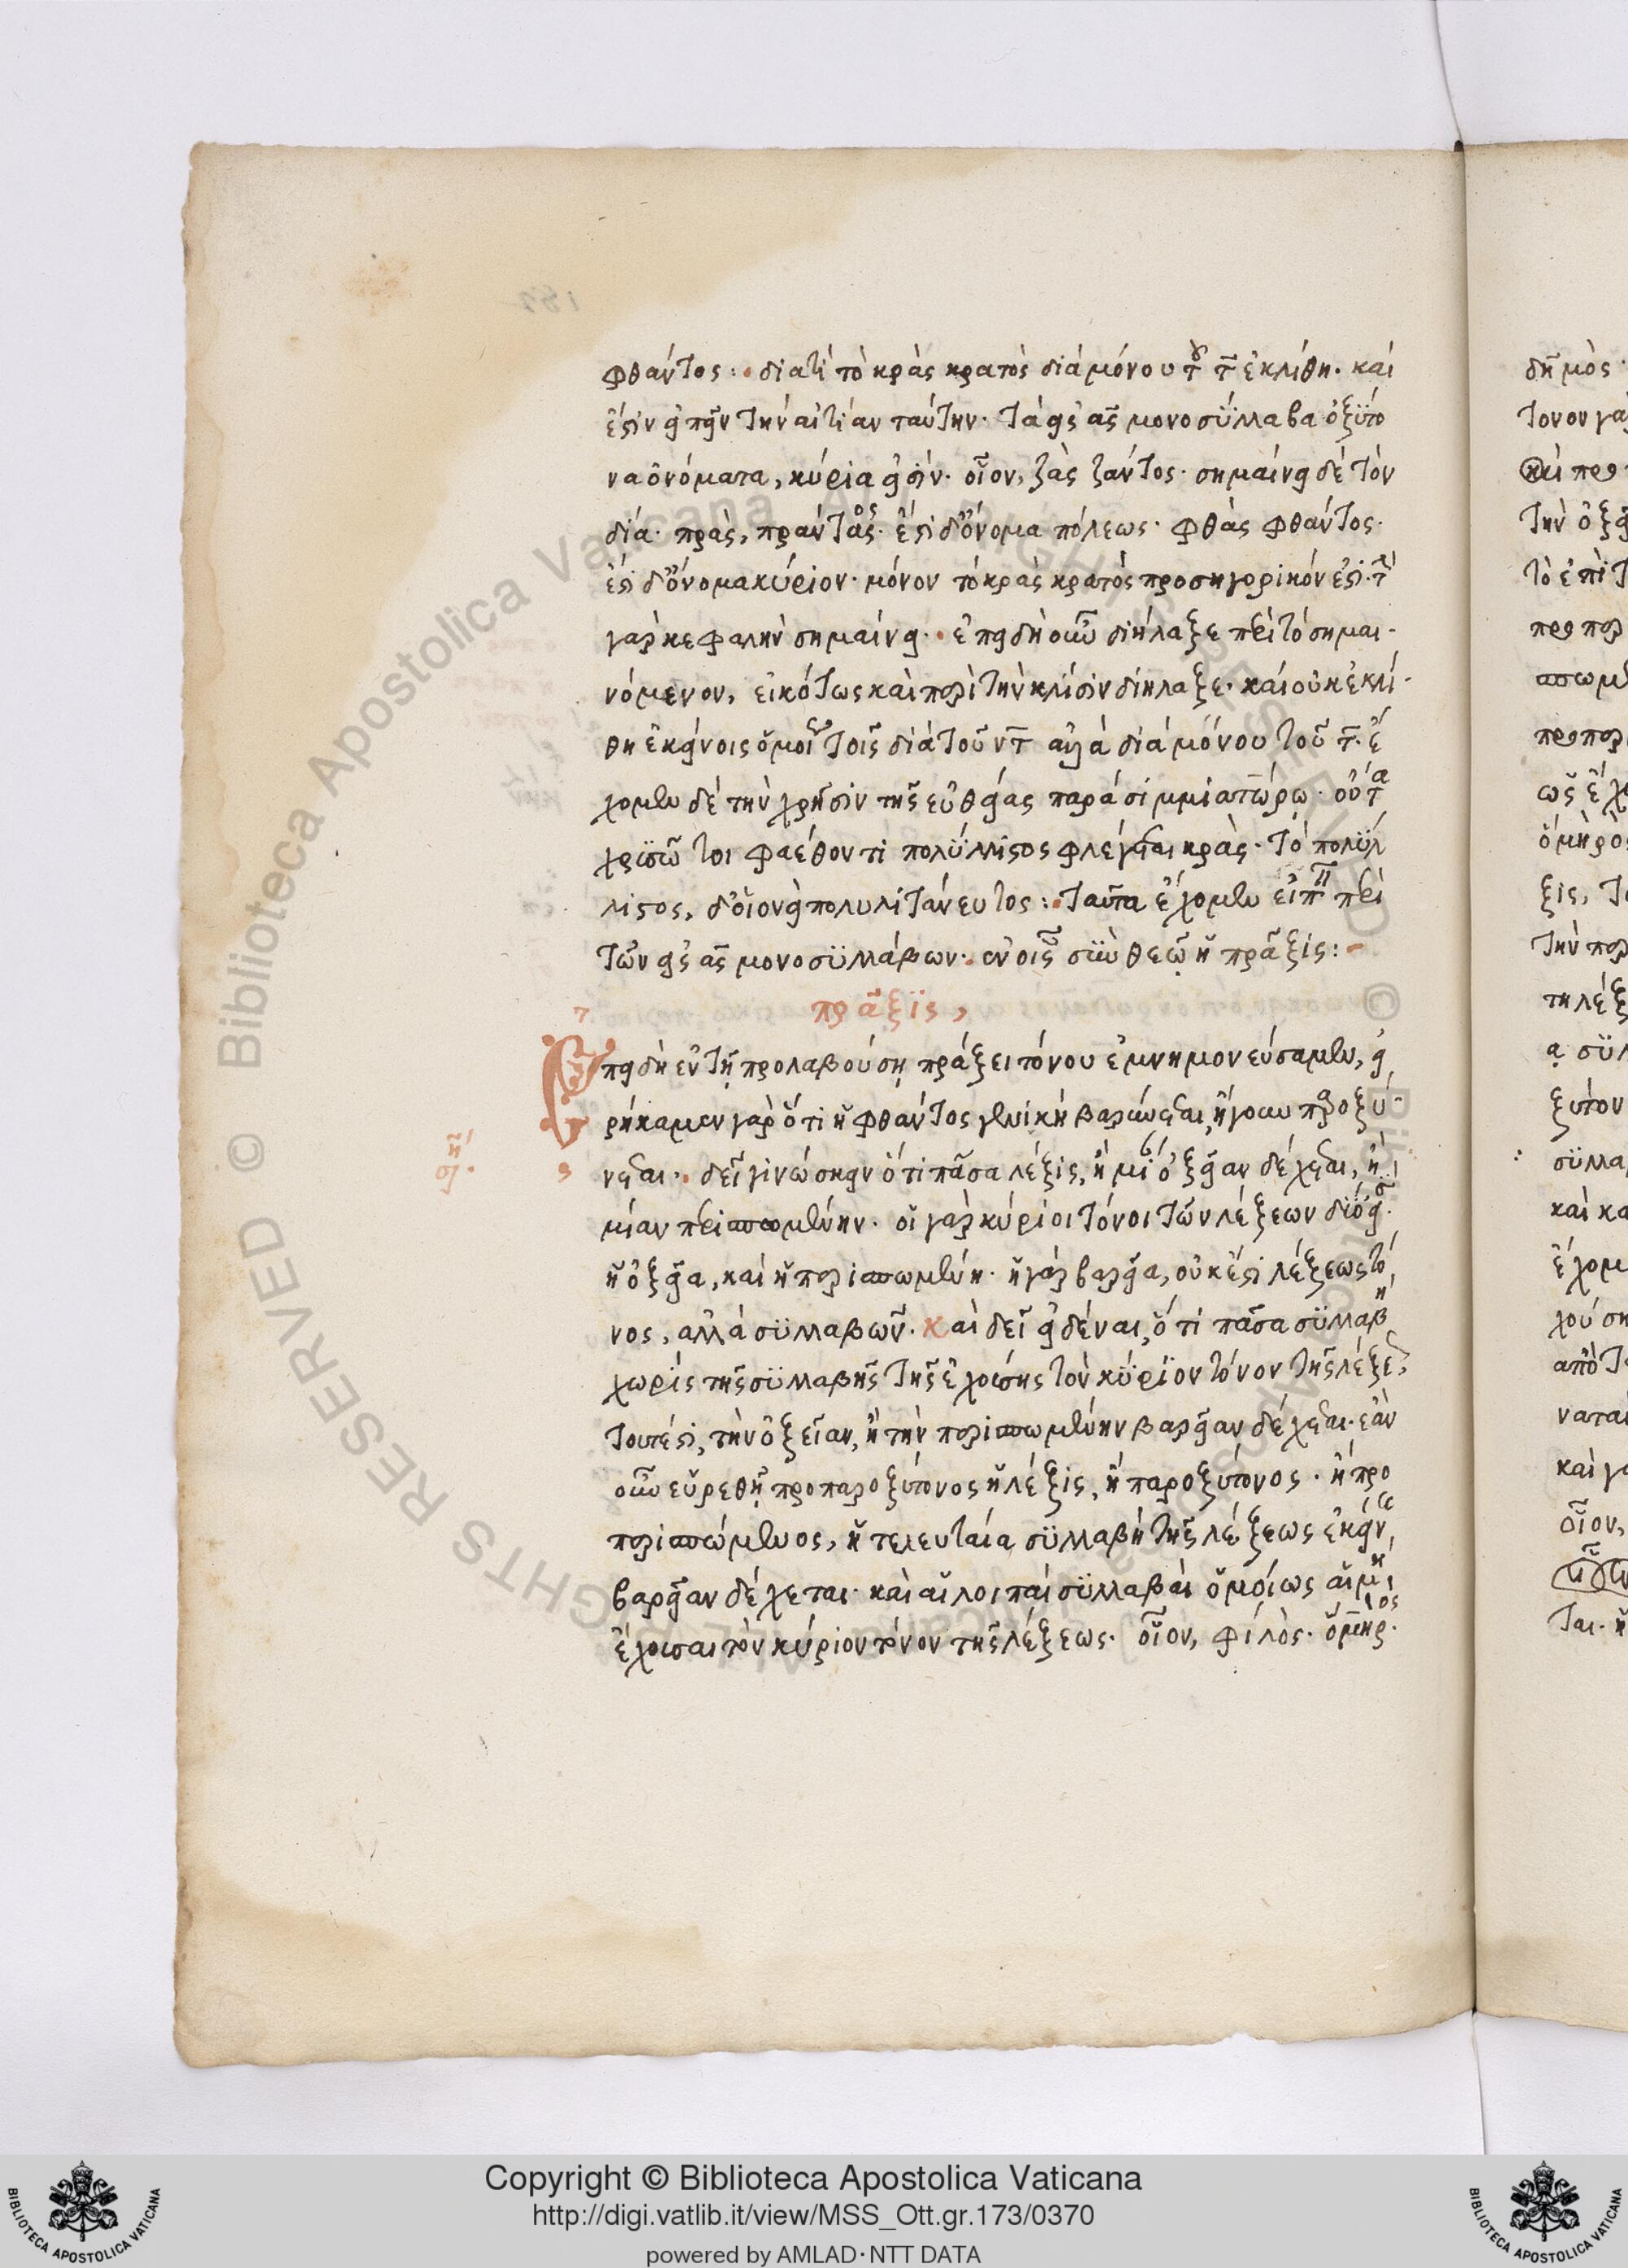 φθάντος: διατί τὸ κρὰς κρατὸς διὰ μόνου τοῦ τ̄ ἐκλίθη. καὶ
ἔστιν εἰπεῖν τὴν αἰτίαν ταύτην. τὰ εἰς ας μονοσύλλαβα ὀξύτο
να ὀνόματα, κύρια εἰσίν. οἷον, ζὰς ζάντος. σημαίνει δὲ τὸν
δία. πρὰς, πράντος. ἔστι δ' ὄνομα πόλεως. φθὰς φθάντος.
ἔστι δ' ὄνομα κύριον. μόνον τὸ κρὰς κρατὸς προσηγορικόν ἐστι. τὴν
γὰρ κεφαλὴν σημαίνει. ἐπειδὴ οὖν διήλαξε περὶ τὸ σημαι-
νόμενον, εἰκότως καὶ περὶ τὴν κλίσιν διήλαξε. καὶ οὐκ ἐκλί-
θη ἐκείνοις ὁμοίως τοῖς διὰ τοῦ ντ̄ ἀλλὰ διὰ μόνου τοῦ τ̄. ἔ
χομεν δὲ τὴν χρῆσιν τῆς εὐθείας παρὰ σιμμία τῷ
τοι φαέθοντι πολύλλιστος φλέγεται κρὰς. τὸ πολύλ
λιστος, πολυλιτάνευτος: ταῦτα ἔχομεν εἰπεῖν περὶ
τῶν εἰς ας μονοσυλλάβων. ἐν οἷς σὺν θεῷ ἡ πρᾶξις:
πρᾶξις,
Ἐπειδὴ ἐν τῇ προλαβούσῃ πράξει τόνου ἐμνημονεύσαμεν, εἰ
ρήκαμεν γὰρ ὅτι ἡ φθάντος γενικὴ βαρύνεται, ἤγουν παροξύ-
νεται. δεῖ γινώσκειν ὅτι πᾶσα λέξις, ἢ μίαν ὀξεῖαν δέχεται, ἢ
μίαν περισπωμένην. οἱ γὰρ κύριοι τόνοι τῶν λέξεων δύο εἰσί.
ἡ ὀξεῖα, καὶ ἡ περισπωμένη. ἡ γὰρ βαρεῖα, οὐκ ἔστι λέξεως τό
νος, ἀλλὰ συλλαβῶν. καὶ δεῖ εἰδέναι, ὅτι πᾶσα συλλαβὴ
χωρὶς τῆς συλλαβῆς τῆς ἐχούσης τὸν κύριον τόνον τῆς λέξεως,
τουτέστι, τὴν ὀξεῖαν, ἢ τὴν περισπωμένην βαρεῖαν δέχεται. ἐὰν
οὖν εὑρεθῇ προπαροξύτονος ἡ λέξις, ἢ παροξύτονος. ἢ προ
περισπώμενος, ἡ τελευταία συλλαβὴ τῆς λέξεως ἐκείνης
βαρεῖαν δέχεται. καὶ αἱ λοιπαὶ συλλαβαὶ ὁμοίως αἱ μὴ
ἔχουσαι τὸν κύριον τόνον τῆς λέξεως. οἷον, φίλὸς. ὅμηρὸς.
Copyright © Biblioteca Apostolica Vaticana
http://digi.vatlib.it/view/MSS_Ott.gr.173/0370
powered by AMLAD·NTT DATA